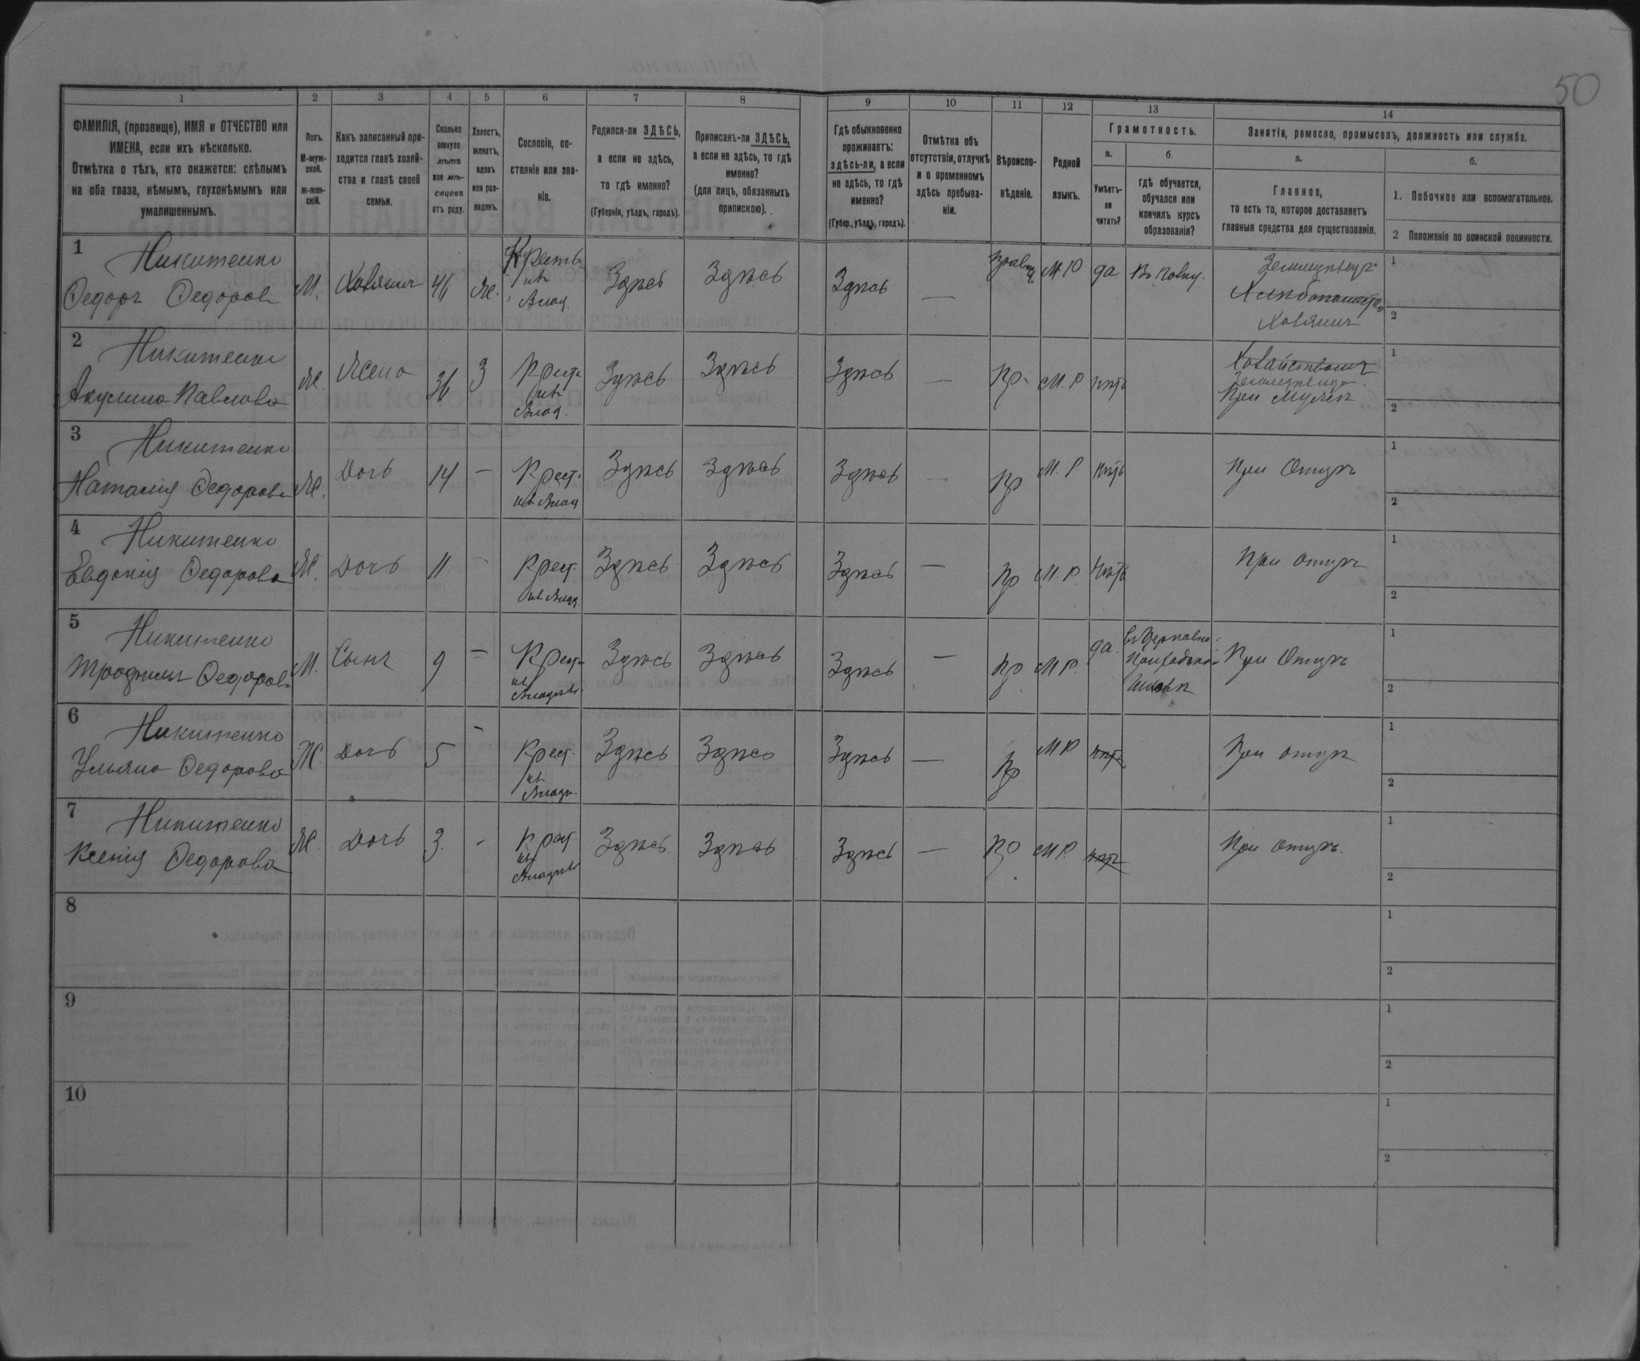 50
1 2 3 4 5 6 7 8 9 10 11 12 13 14
ФАМИЛІЯ, (прозвище), ИМЯ и ОТЧЕСТВО или
ИМЕНА, если ихъ нѣсколько.
Отмѣтка о тѣхъ, кто окажется: слѣпымъ
на оба глаза, нѣмымъ, глухонѣмымъ или
умалишеннымъ.
Полъ.
М-муж-
ской.
Ж-жен-
скій.
Какъ записанный при-
ходится главѣ хозяй-
ства и главѣ своей
семьи.
Сколько
минуло
лѣтъ
или мѣ-
сяцевъ
отъ роду.
Холостъ,
женатъ,
вдовъ
или раз-
веденъ.
Сословіе, со-
стояніе или зва-
ніе.
Родился-ли ЗДѢСЬ,
а если не здѣсь,
то гдѣ именно?
(Губернія, уѣздъ, городъ).
Приписанъ-ли ЗДѢСЬ,
а если не здѣсь, то гдѣ
именно?
(для лицъ, обязанныхъ
припискою).
Гдѣ обыкновенно
проживаетъ:
здѣсь-ли, а если
не здѣсь, то гдѣ
именно?
(Губер., уѣздъ, городъ).
Отмѣтка объ
отсутствіи, отлучкѣ
и о временномъ
здѣсь пребыва-
ніи.
Вѣроиспо-
вѣданіе.
Родной
языкъ.
Грамотность.
а.
Умѣетъ-
ли
читать?
б.
гдѣ обучается,
обучался или
кончилъ курсъ
образованія?
Занятіе, ремесло, промыселъ, должность или служба.
а.
Главное,
то есть то, которое доставляетъ
главныя средства для существованія.
б.
1. Побочное или вспомогательное.
2 Положеніе по воинской повинности.
1 Никитенко
Федоръ Федоровъ М. Хозяинъ 46 Ж. Крестья
изъ
Влад. Здѣсь Здѣсь Здѣсь — Правос М.Р да Земледѣлецъ
Хозяинъ
1
2
2 Никитенко
Акулина Павлова Ж. Жена 36 З Крест.
изъ
Влад. Здѣсь Здѣсь Здѣсь — Пр. М.Р нѣтъ
При мужѣ
1
2
3 Никитенко
Наталія Федорова Ж. Дочь 14 — Крест.
изъ Влад Здѣсь Здѣсь Здѣсь — Пр М.Р нѣтъ При Отцѣ
1
2
4 Никитенко
Евдокія Федорова Ж. Дочь 11 - Крест.
из Влад. Здѣсь Здѣсь Здѣсь — Пр М.Р. нѣтъ При отцѣ
1
2
5 Никитенко
Трофимъ Федоровъ М. Сынъ 9 — Крест.
из
Владѣл. Здѣсь Здѣсь Здѣсь — Пр М.Р. да Въ Церковно-
Приходской
Школѣ При Отцѣ
1
2
6 Никитенко
Ульяна Федорова Ж. Дочь 5 - Крест.
из
Владѣл. Здѣсь Здѣсь Здѣсь — Пр М.Р нѣтъ При отцѣ
1
2
7 Никитенко
Ксенія Федорова Ж. Дочь 3. - Крест.
из
Владѣл. Здѣсь Здѣсь Здѣсь — Пр М.Р. нѣтъ При отцѣ.
1
2
8
1
2
9
1
2
10
1
2